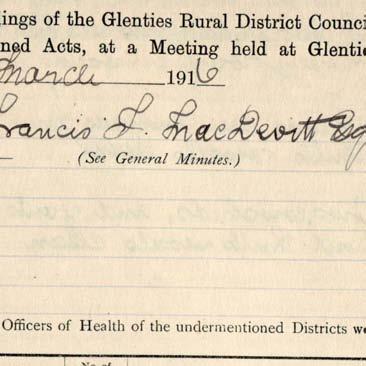 ings of the Glenties Rural District Counci
ned Acts, at a Meeting held at Glentie
March 1916
Francis J. MacDevitt Esq
(See General Minutes.)
Officers of Health of the undermentioned Districts we
No. of